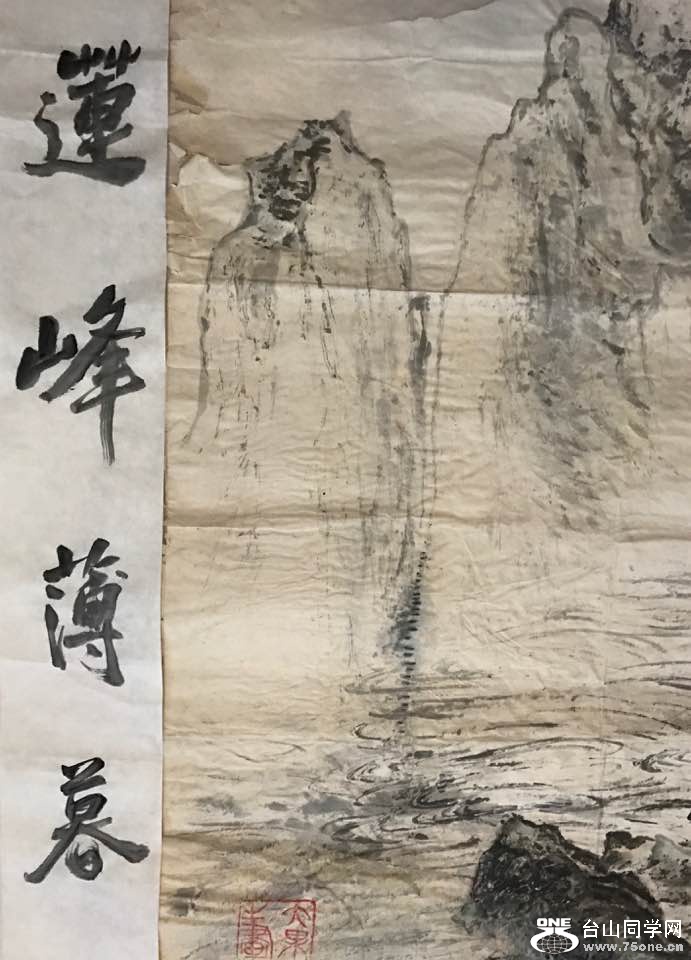 蓮峰薄暮
ONE
台山同学网
www.75one.cn